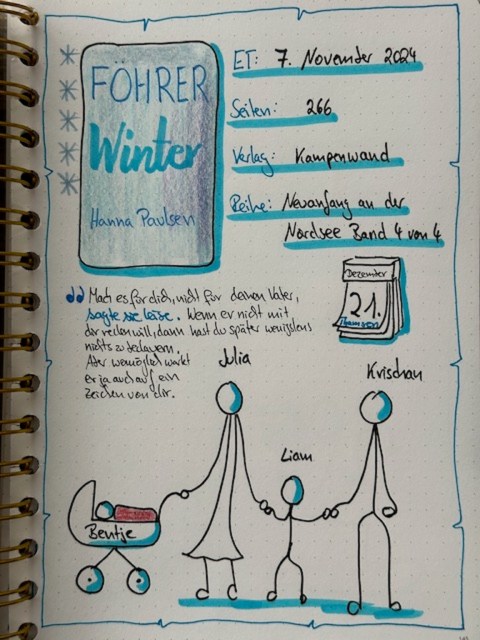 FÖHRER
Winter
Hanna Paulsen
ET: 7. November 2024
Seiten: 266
Verlag: Kampenwand
Reihe: Neuanfang an der
Nordsee Band 4 von 4
Mach es für dich, nicht für deinen Vater,
sagte sie leise. Wenn er nicht mit
dir reden will, dann hast du später wenigstens
nichts zu bedauern.
Aber womöglich wartet
er ja auch auf ein
Zeichen von dir.
Dezember
21.
Julia
Krischan
Liam
Bentje